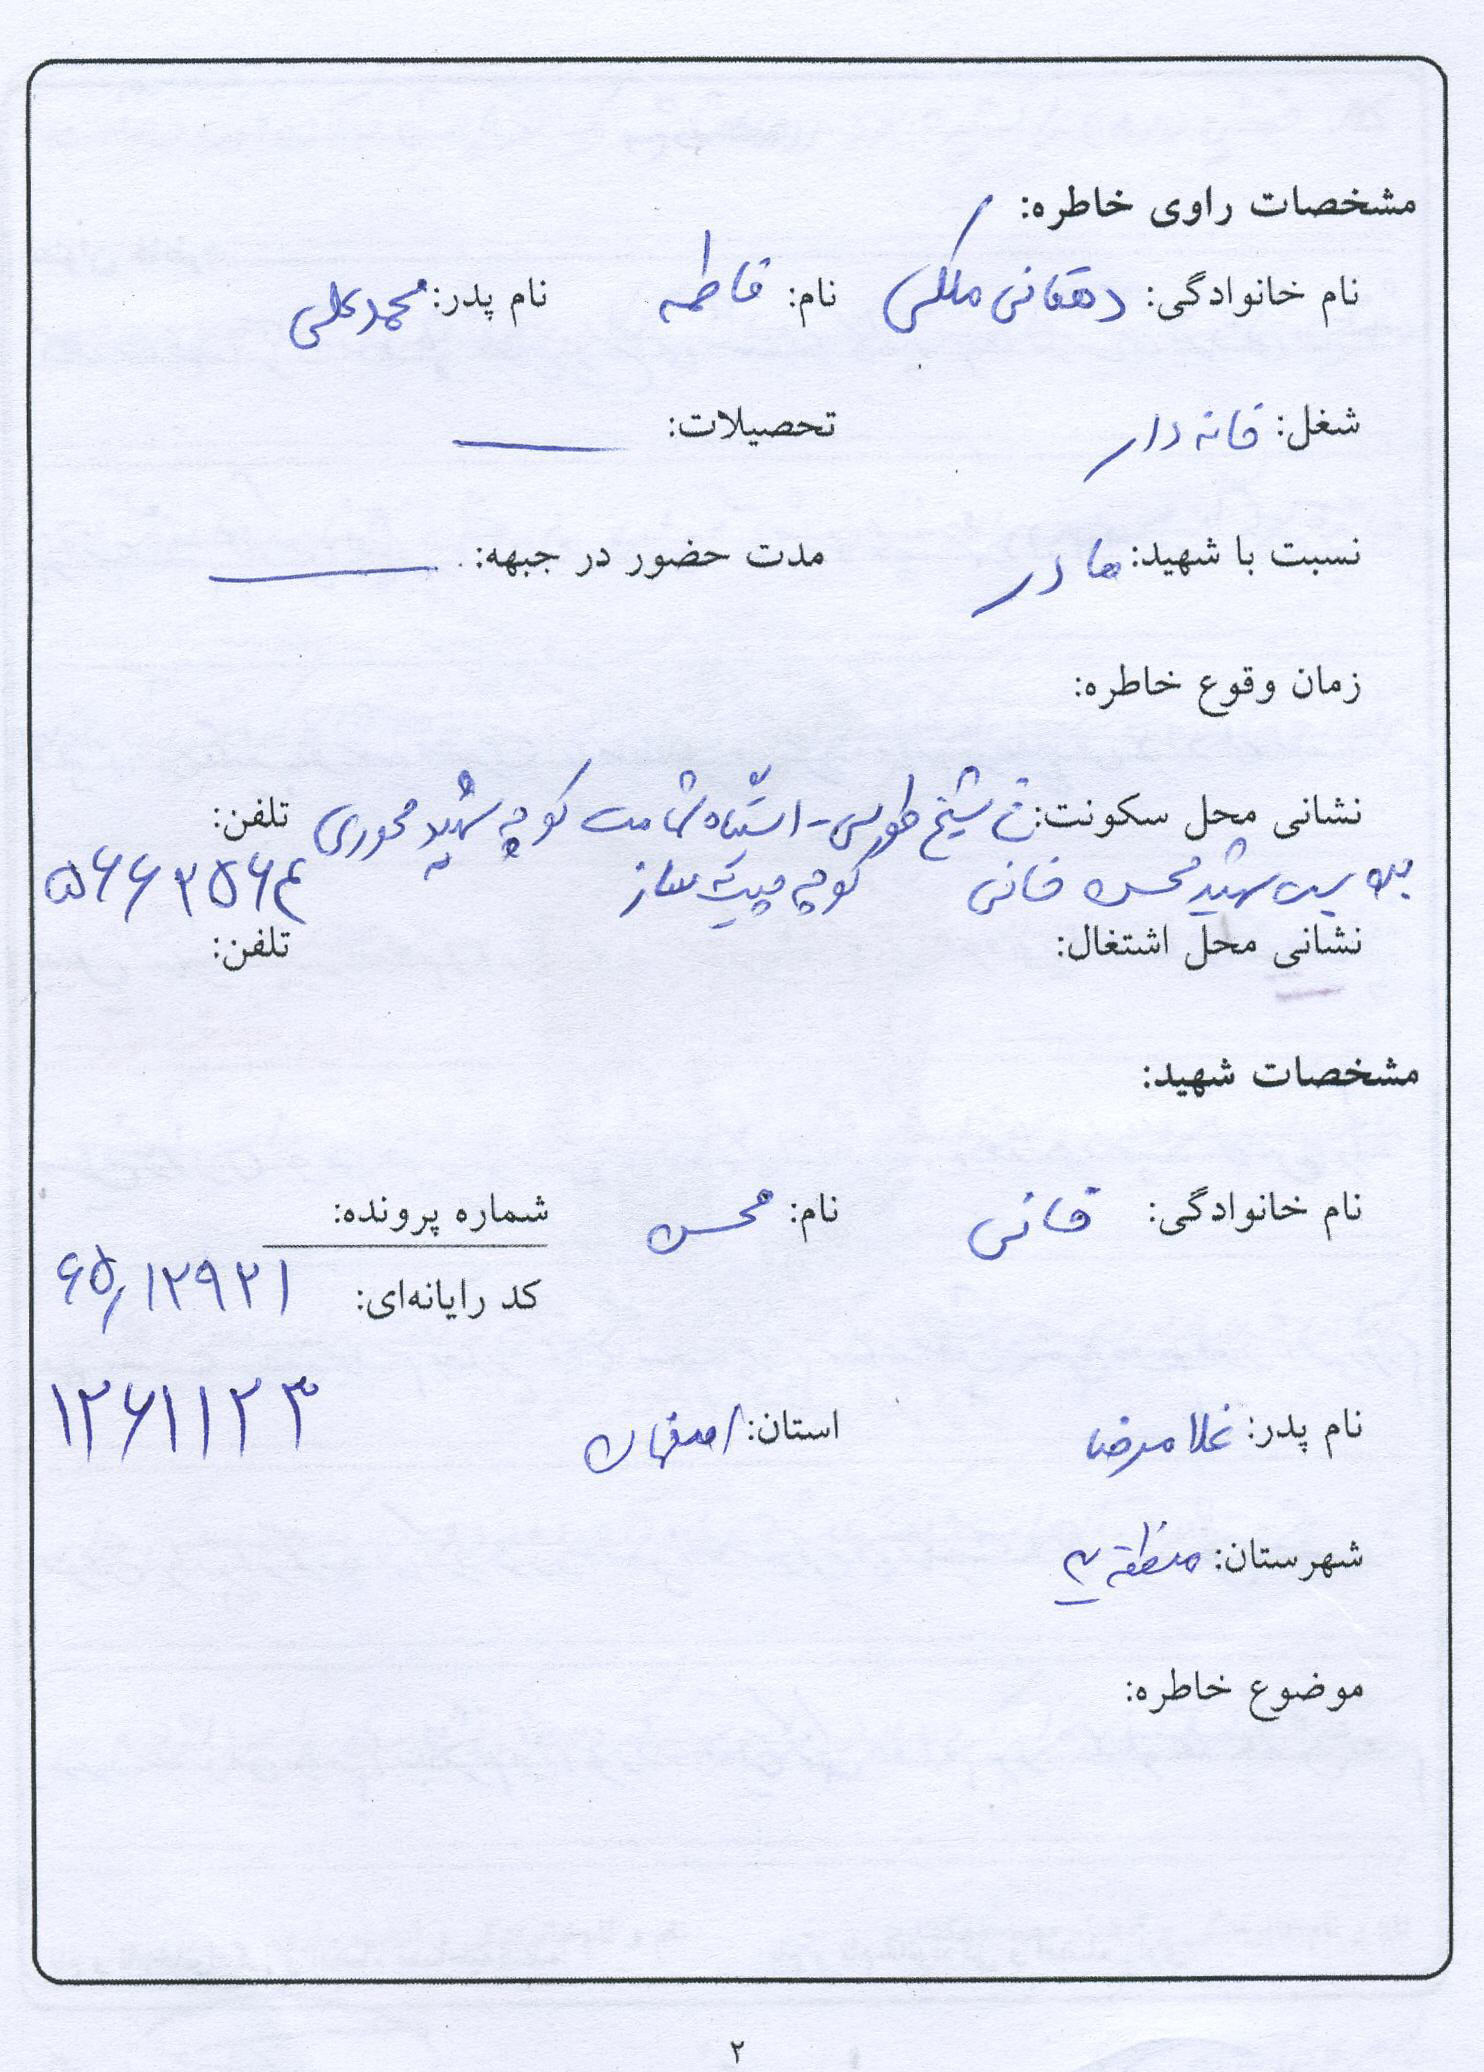 مشخصات راوی خاطره:
نام خانوادگی: دهقانی ملکی نام: فاطمه نام پدر: محمدعلی
شغل: خانه دار تحصیلات: ـــــ
نسبت با شهید: مادر مدت حضور در جبهه: ـــــ
زمان وقوع خاطره:
نشانی محل سکونت: خ شیخ طوسی - ایستگاه کوچه شهید محوری تلفن:
بن بست شهید محسن فانی کوچه شیشه ساز
نشانی محل اشتغال: تلفن:
مشخصات شهید:
نام خانوادگی: فانی نام: محسن شماره پرونده:
کد رایانه‌ای: ۶۵/۱۲۹۲۱
۱۲۶۱۱۲۳
نام پدر: غلامرضا استان: اصفهان
شهرستان: منطقه ۳
موضوع خاطره:
۲